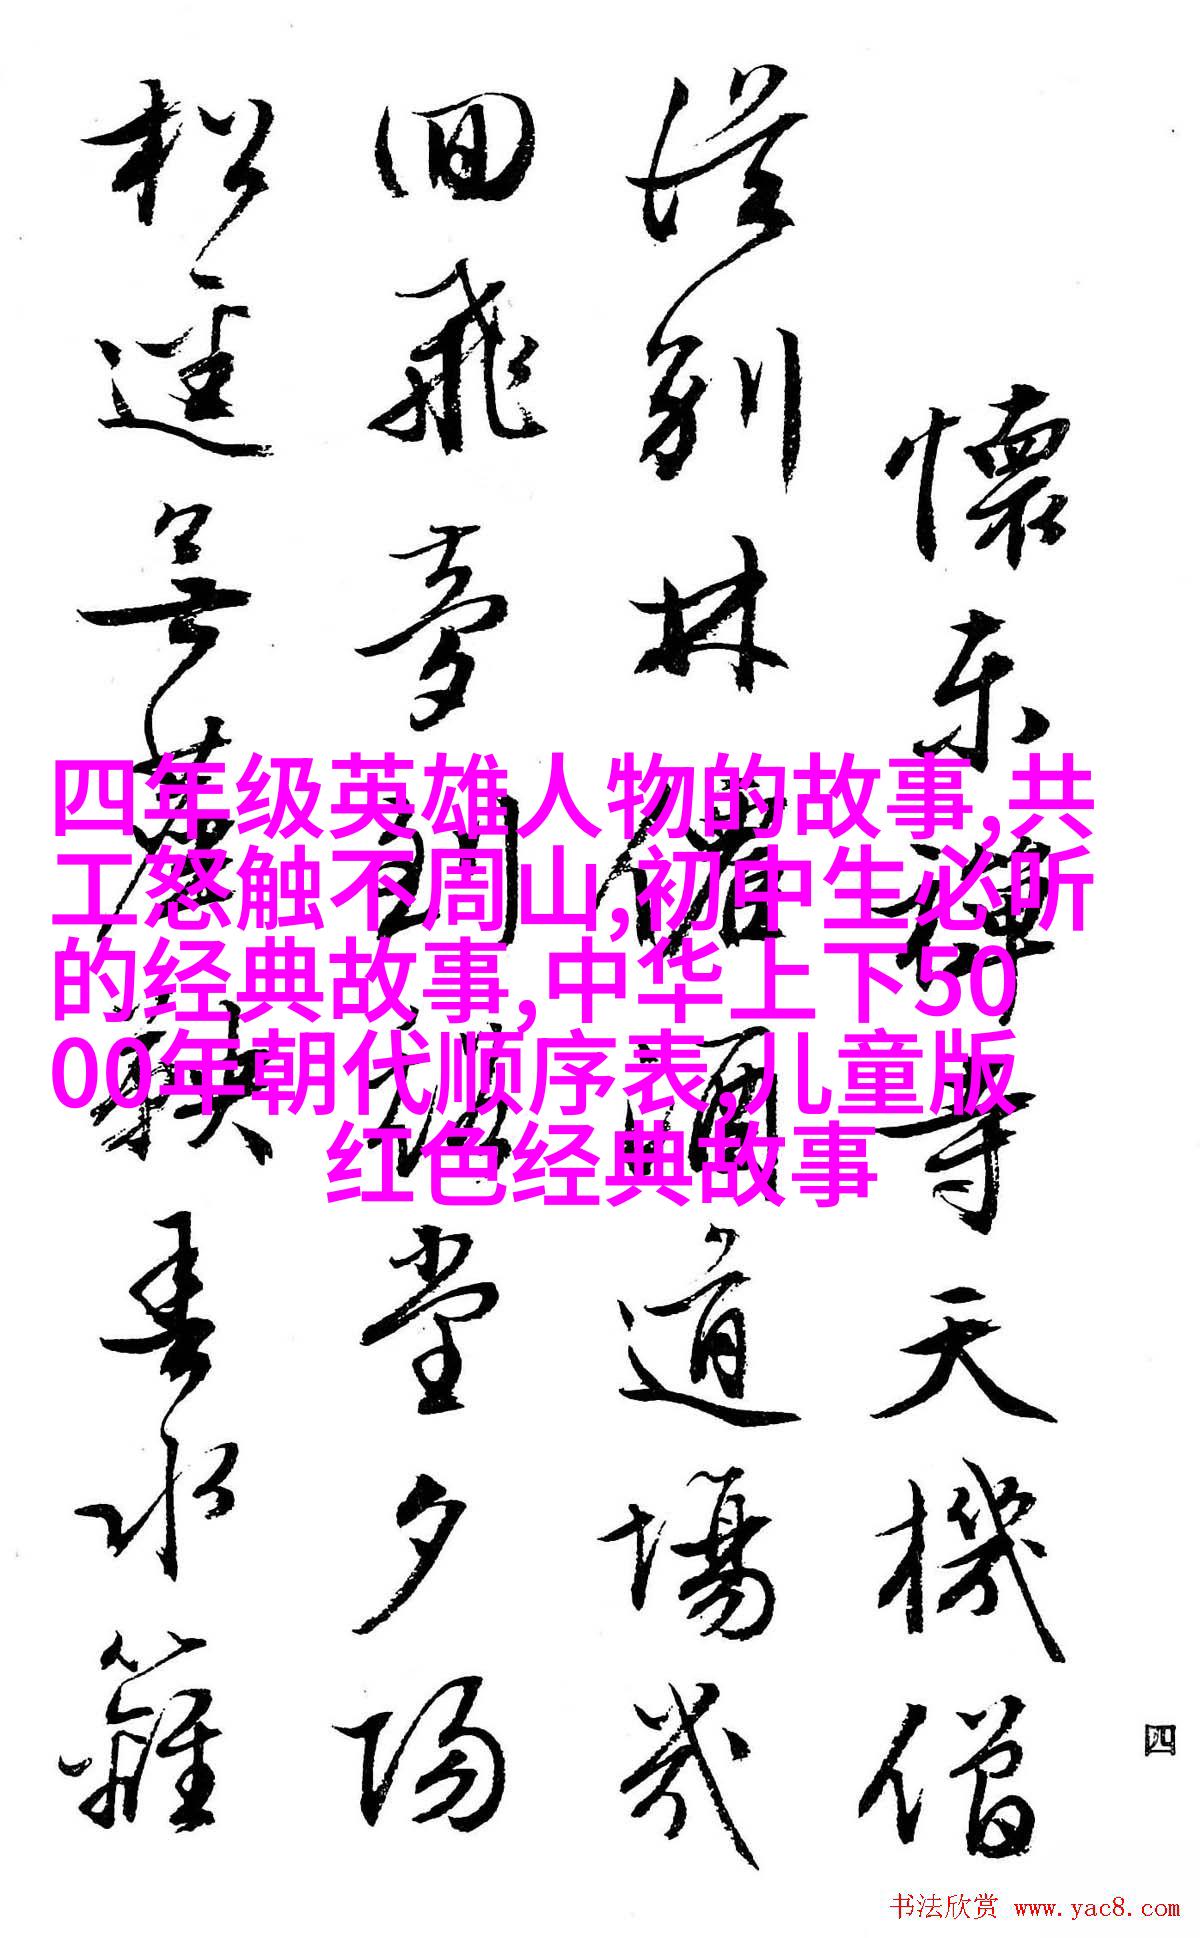 懷東禪寺天機僧
從別林僧頭道場幾
回飛夢到禪堂夕陽
松逕無塵鞅春水籬
四年级英雄人物的故事,共
工怒触不周山,初中生必听
的经典故事,中华上下50
00年朝代顺序表,儿童版
红色经典故事
四
书法欣赏 www.yac8.com